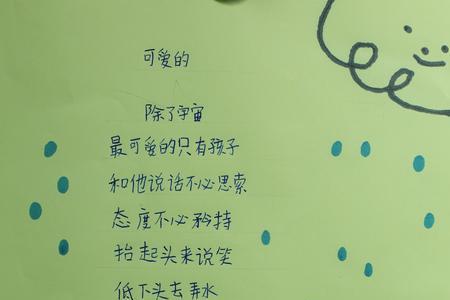 可爱的
除了宇宙
最可爱的只有孩子
和他说话不必思索
态度不必矜持
抬起头来说笑
低下头去弄水